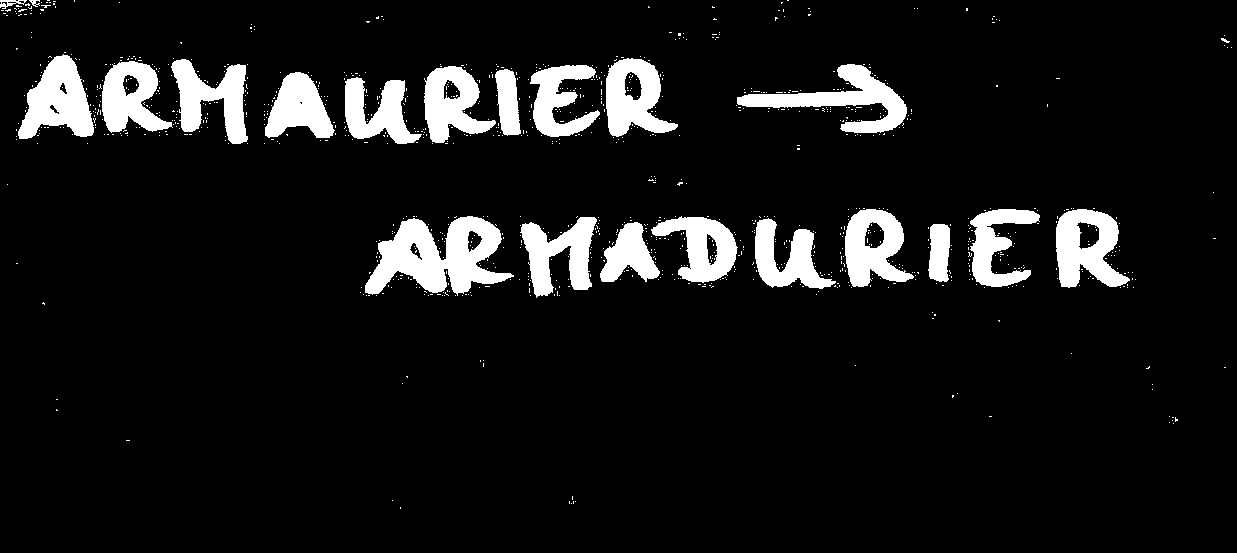 ARMAURIER →
ARMADURIER